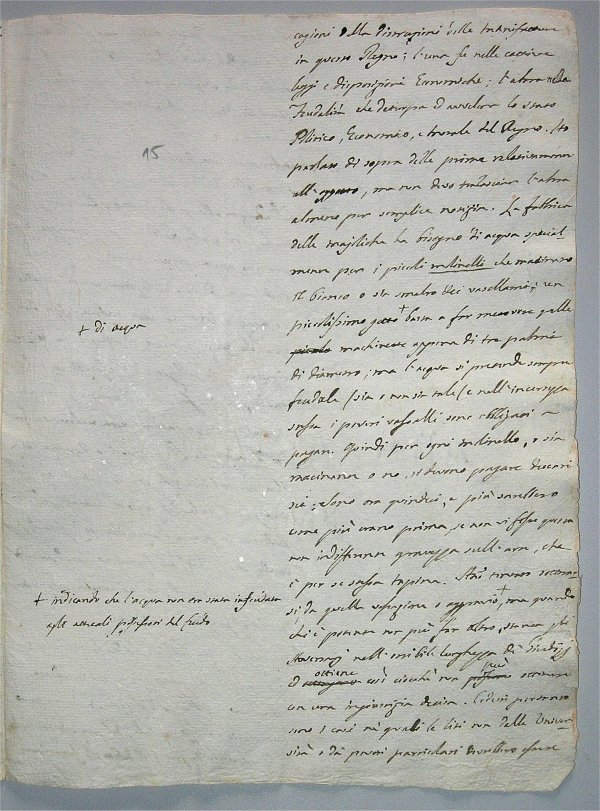 cagioni della distruzione delle manifatture
in questo Regno; l'una sta nelle cattive
leggi e disposizioni Economiche; l'altra nella
Feudalità che deturpa ed avvelena lo stato
Politico, Economico, e morale del Regno. Ho
parlato di sopra della prima relativamente
all' , ma non devo tralasciare l'altra
almeno per semplice notizia. La fabbrica
delle majoliche ha bisogno di acqua special-
mente per i piccoli mulinelli che macinano
il bianco o sia smalto dei vasellami; un
piccolissimo getto + basta a far muovere quelle
piccole machinette appena di tre palmi
di diametro; ma l'acqua si pretende sempre
feudale (sia o non sia tale) e nell'incertezza
stessa i poveri vassalli sono obbligati a
pagare. Quindi per ogni mulinello, o sia
macinante o no, si devono pagare ducati
sei; e sono ora quindici, e più sarebbero
come più erano prima, se non vi fosse questa
non indifferente gravezza sull'arte, che
è per se stessa tapina. Anni
si da quella + , ma quando
chi è potente non può far altro, stanca gli
nell' lunghezza de' Giudizj
ed ottiene così ciocchè non può ottenere
con una ingiustizia decisa. 
sono i casi ne' quali le liti non delle Univer-
sità o da poveri particolari 
15
+ di acqua
+ indicando che l'acqua non era stata infeudata
agli attuali possessori del feudo